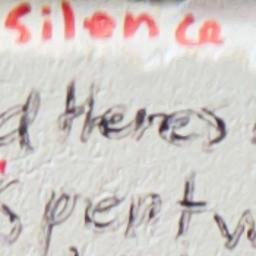 silence
d Heres
spent w